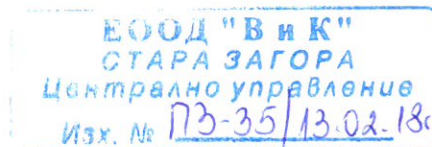 ЕООД "В и К"
СТАРА ЗАГОРА
Централно управление
Изх. № ПЗ-35/13.02.18г